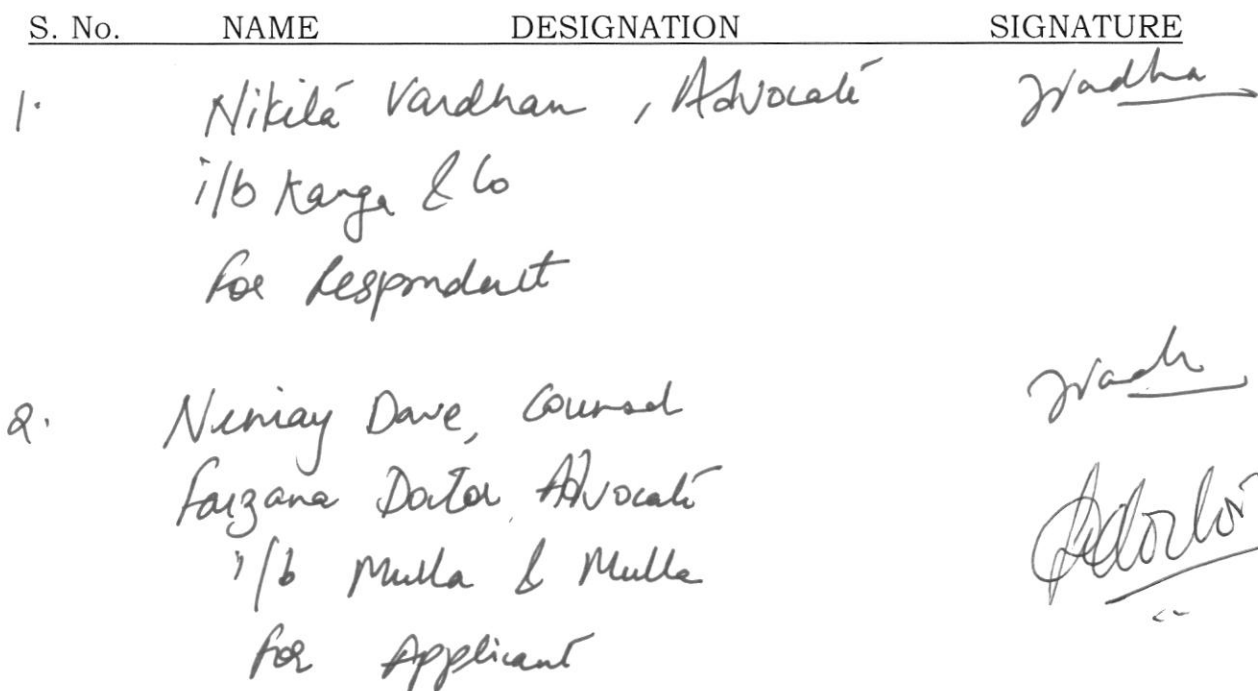 S. No. NAME DESIGNATION SIGNATURE
1. Nikita Vardhan, Advocate
i/b Kanga & Co
for Respondent
2. Dave, Counsel
Farzana Doctor, Advocate
i/b Mulla & Mulla
for Applicant